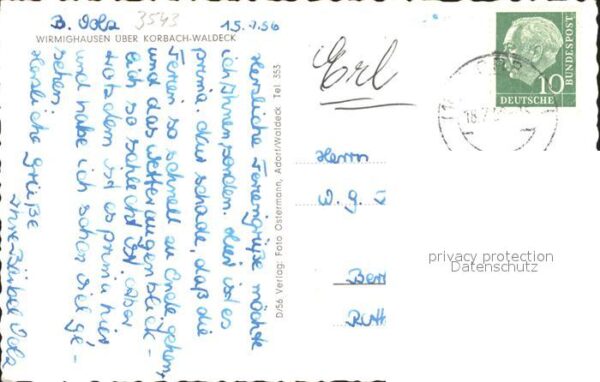 B. Dola
3543
15.7.56
WIRMIGHAUSEN ÜBER KORBACH-WALDECK
Herzliche Feriengrüße möchte
ich Ihnen senden. Hier ist es
prima, nur schade, daß die
Ferien so schnell zu Ende gehen,
und das Wetter augenblick-
lich so schlecht ist. Aber
trotzdem ist es prima hier
und habe ich schon viel ge-
sehen.
Herzliche Grüße
Ihre Bärbel Dola
D/56 Verlag: Foto Ostermann, Adorf/Waldeck Tel. 353
Erl
10
DEUTSCHE
BUNDESPOST
18.7.
Herrn
W. G.
privacy protection
Datenschutz